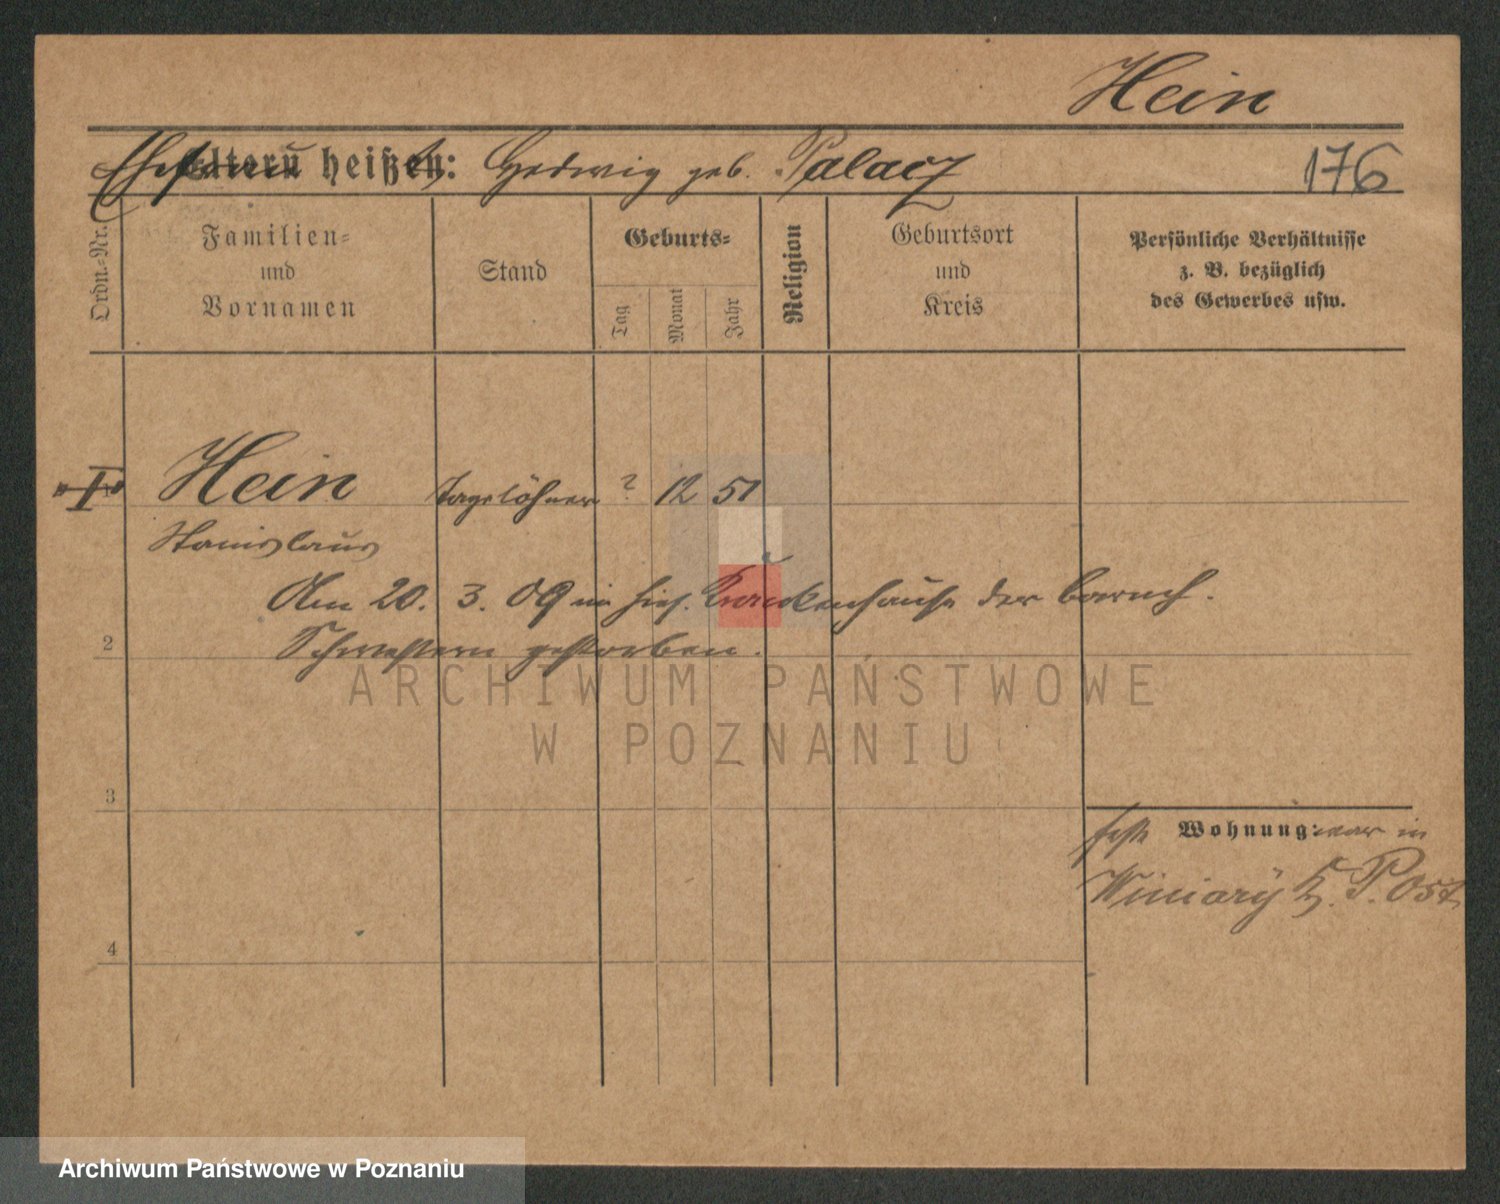 Hein
Ehefrau Eltern heißen: Hedwig geb. Palacz 176
Ordn.-Nr.
Familien-
und
Vornamen
Stand
Geburts-
Tag
Monat
Jahr
Religion
Geburtsort
und
Kreis
Persönliche Verhältnisse
z. B. bezüglich
des Gewerbes usw.
I Hein Tagelöhner ? 12 51
Stanislaus
Am 20. 3. 09 im hies. Krankenhause der barmh.
2
Schwestern gestorben.
ARCHIWUM PAŃSTWOWE
W POZNANIU
3
feste Wohnung: war in
Winiary K. P. Ost
4
Archiwum Państwowe w Poznaniu